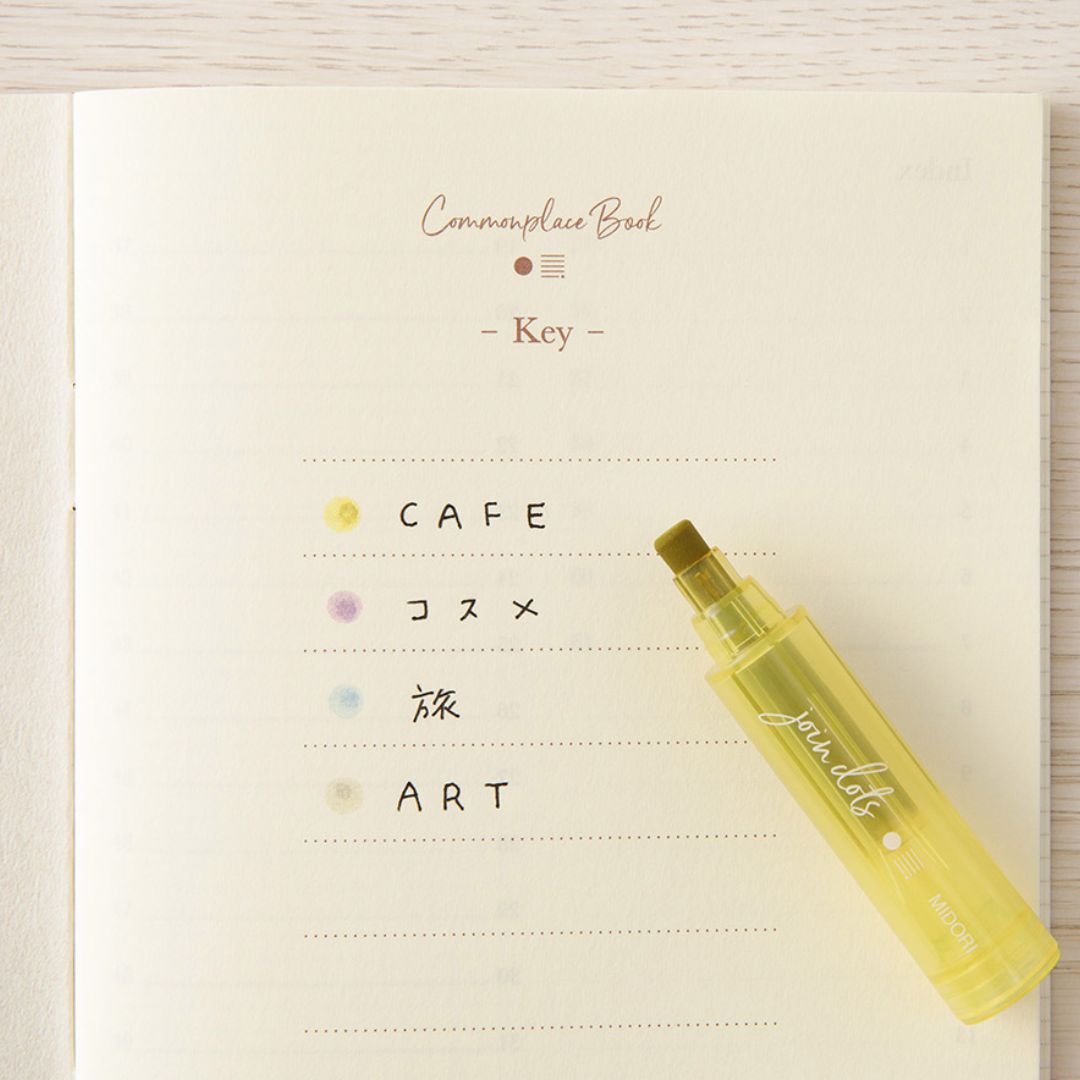 Index
Commonplace Book
- Key -
CAFE
コスメ
旅
ART
join dots
MIDORI